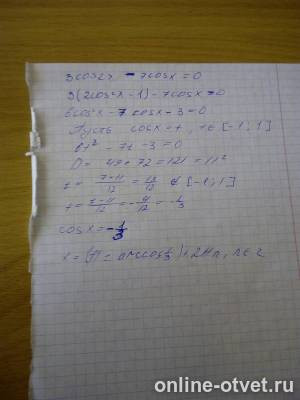 3cos2x - 7cosx = 0
3(2cos²x - 1) - 7cosx = 0
6cos²x - 7cosx - 3 = 0
Пусть cosx = t, t ∈ [-1; 1]
6t² - 7t - 3 = 0
D = 49 + 72 = 121 = 11²
t = 7+11/12 = 18/12 ∉ [-1; 1]
t = 7-11/12 = -4/12 = -1/3
cosx = -1/3
x = (π ± arccos 1/3) + 2πn, n ∈ z
online-otvet.ru